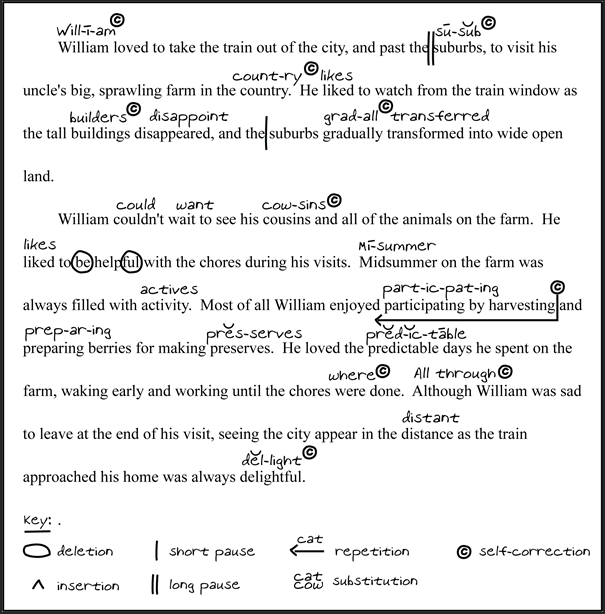 Will-ī-am© sū-sŭb©
William loved to take the train out of the city, and past the suburbs, to visit his
count-ry© likes
uncle's big, sprawling farm in the country. He liked to watch from the train window as
builders© disappoint grad-all© transferred
the tall buildings disappeared, and the suburbs gradually transformed into wide open
land.
could want cow-sins©
William couldn't wait to see his cousins and all of the animals on the farm. He
likes Mī-summer
liked to be helpful with the chores during his visits. Midsummer on the farm was
actives part-ic-pat-ing ©
always filled with activity. Most of all William enjoyed participating by harvesting and
prep-ar-ing prĕs-serves prĕd-ĭc-tāble
preparing berries for making preserves. He loved the predictable days he spent on the
where© All through©
farm, waking early and working until the chores were done. Although William was sad
distant
to leave at the end of his visit, seeing the city appear in the distance as the train
dĕl-light©
approached his home was always delightful.
Key: .
deletion | short pause cat repetition © self-correction
^ insertion || long pause cat cow substitution